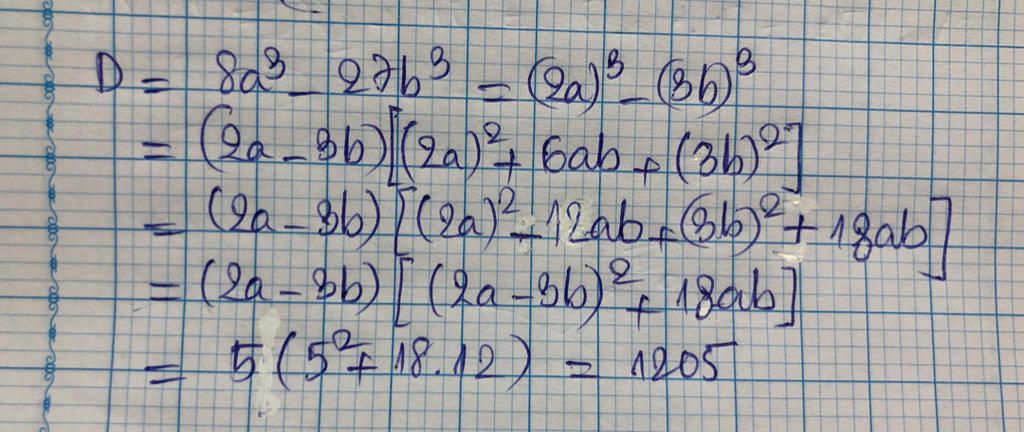 D = 8a³ - 27b³ = (2a)³ - (3b)³
= (2a - 3b)[(2a)² + 6ab + (3b)²]
= (2a - 3b)[(2a)² - 12ab + (3b)² + 18ab]
= (2a - 3b)[(2a - 3b)² + 18ab]
= 5(5² + 18.12) = 1205